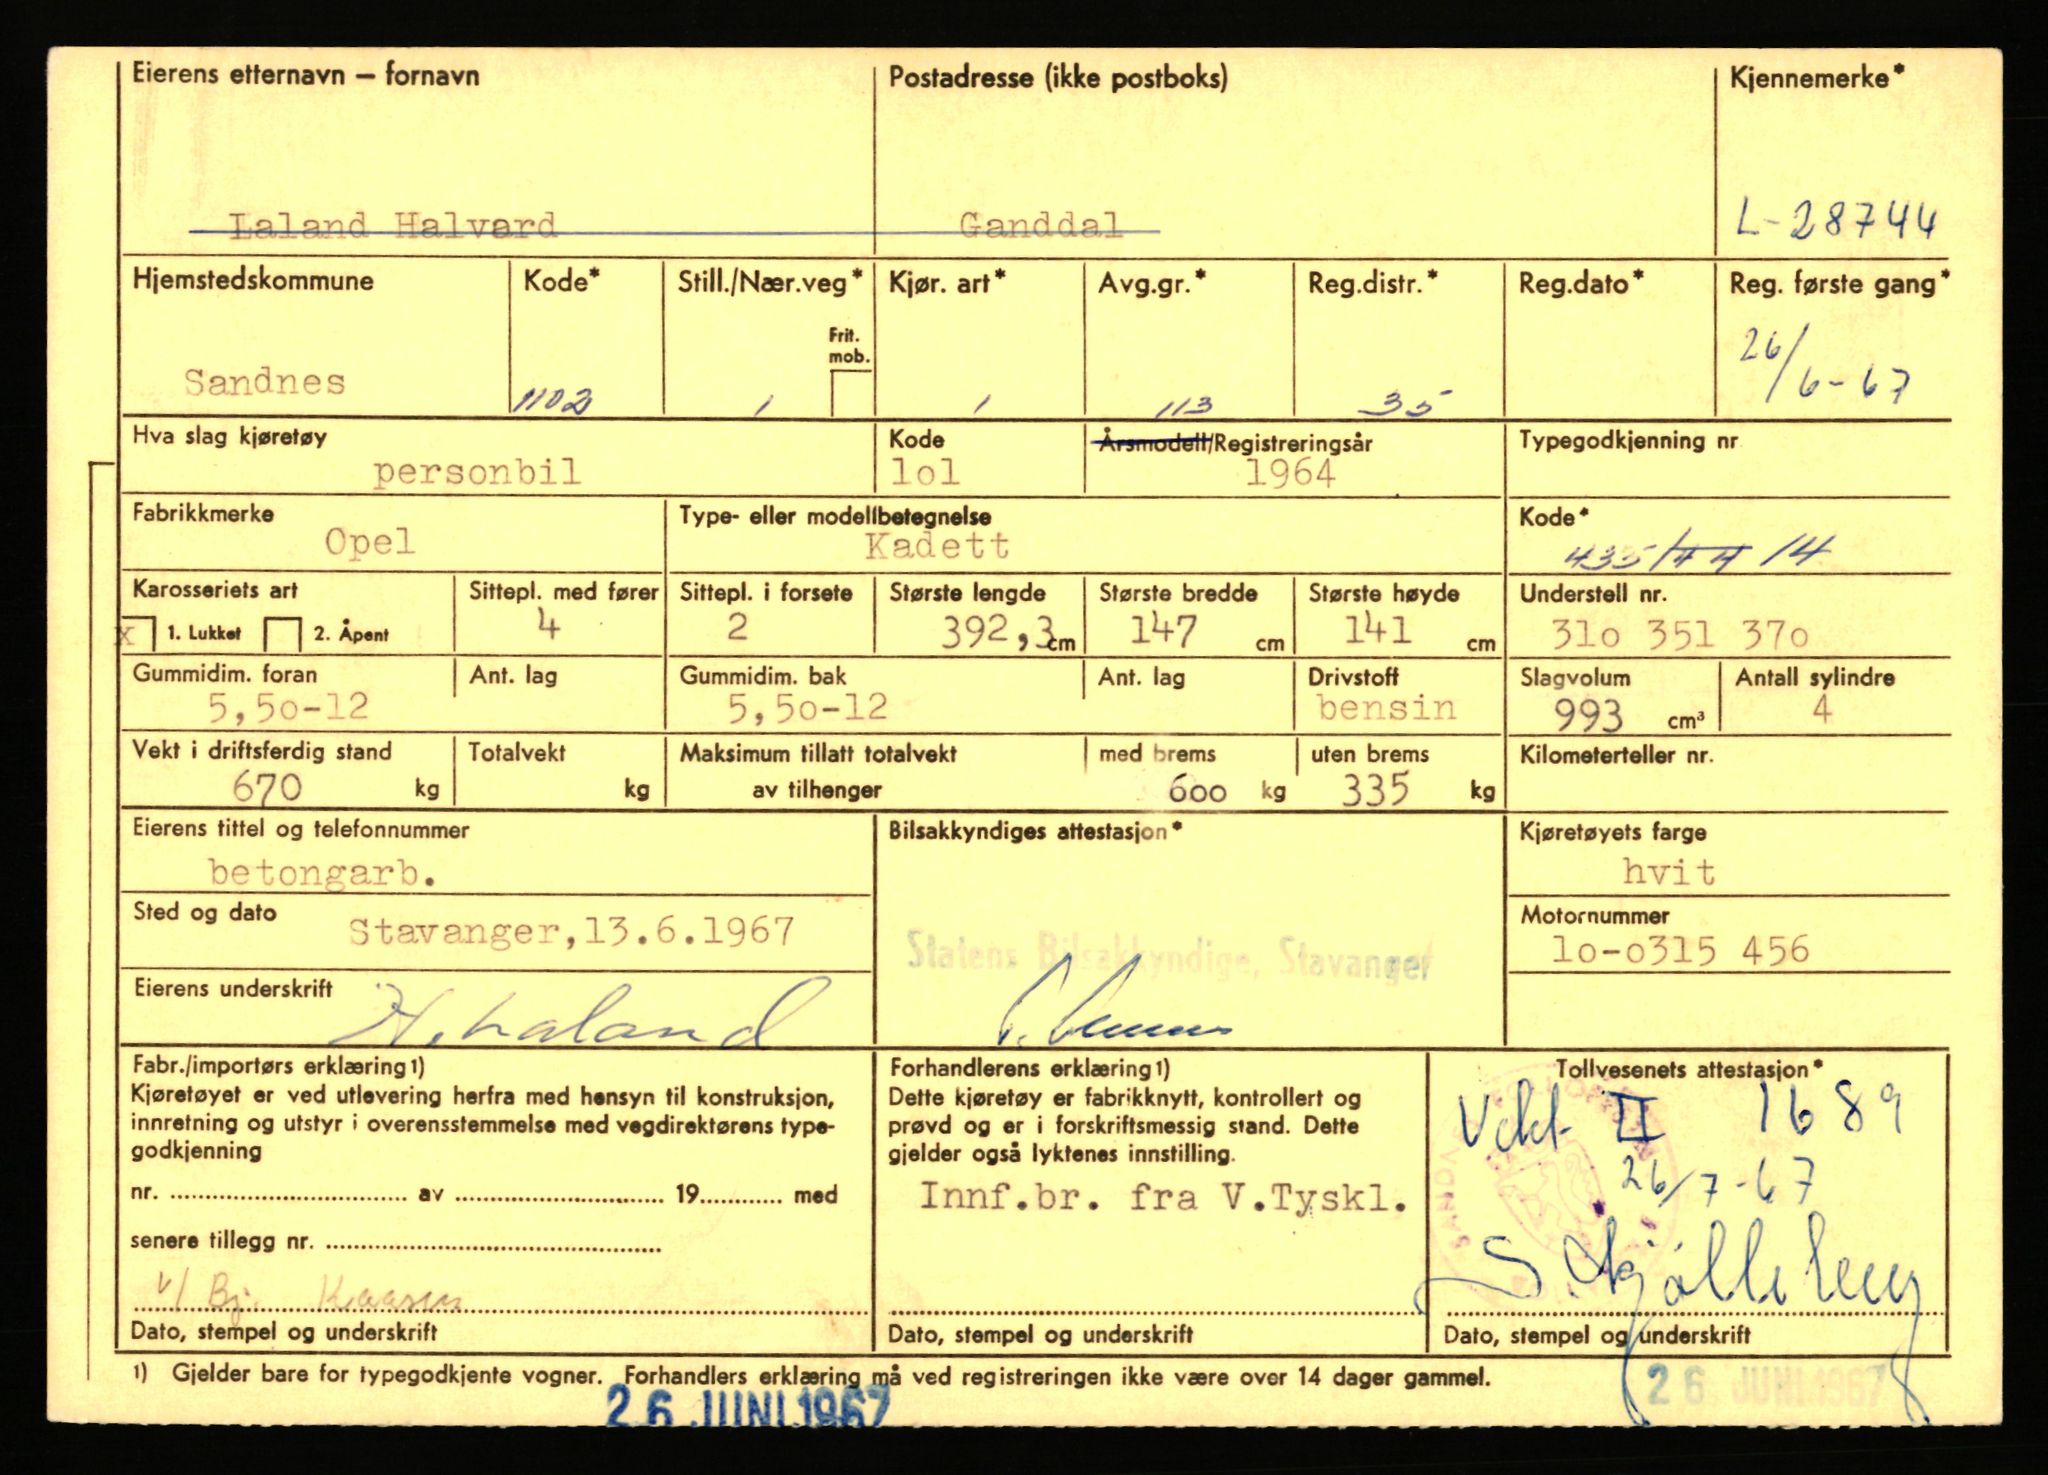 Eierens etternavn – fornavn
Postadresse (ikke postboks)
Kjennemerke*
Laland Halvard
Ganddal
L-28744
Hjemstedskommune
Kode*
Still./Nær.veg*
Kjør. art*
Avg.gr.*
Reg.distr.*
Reg.dato*
Reg. første gang*
Frit.
mob.
Sandnes
1102
1
1
113
35
26/6-67
Hva slag kjøretøy
Kode
Årsmodell/Registreringsår
Typegodkjenning nr
personbil
lol
1964
Fabrikkmerke
Type- eller modellbetegnelse
Kode*
Opel
Kadett
435/44 14
Karosseriets art
Sittepl. med fører
Sittepl. i forsete
Største lengde
Største bredde
Største høyde
Understell nr.
x 1. Lukket
2. Åpent
4
2
392,3 cm
147 cm
141 cm
31o 351 37o
Gummidim. foran
Ant. lag
Gummidim. bak
Ant. lag
Drivstoff
Slagvolum
Antall sylindre
5,5o-12
5,5o-12
bensin
993 cm³
4
Vekt i driftsferdig stand
Totalvekt
Maksimum tillatt totalvekt
med brems
uten brems
Kilometerteller nr.
670 kg
kg
av tilhenger
600 kg
335 kg
Eierens tittel og telefonnummer
Bilsakkyndiges attestasjon*
Kjøretøyets farge
betongarb.
hvit
Sted og dato
Stavanger,13.6.1967
Motornummer
Statens Bilsakkyndige, Stavanger
lo-o315 456
Eierens underskrift
H. Laland
Fabr./importørs erklæring1)
Kjøretøyet er ved utlevering herfra med hensyn til konstruksjon,
innretning og utstyr i overensstemmelse med vegdirektørens type-
godkjenning
nr. .......... av .......... 19.......... med
senere tillegg nr. ..........
v/ Bj. Kaasen
Dato, stempel og underskrift
Forhandlerens erklæring1)
Dette kjøretøy er fabrikknytt, kontrollert og
prøvd og er i forskriftsmessig stand. Dette
gjelder også lyktenes innstilling.
Innf.br. fra V.Tyskl.
Dato, stempel og underskrift
Tollvesenets attestasjon*
Vekt II 1689
26/7-67
Dato, stempel og underskrift
1) Gjelder bare for typegodkjente vogner. Forhandlers erklæring må ved registreringen ikke være over 14 dager gammel.
26 JUNI 1967
26 JUNI 1967